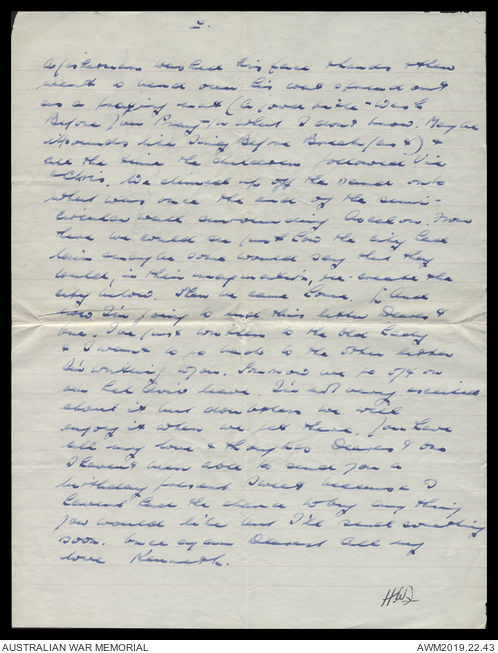 A fisherman washed his face & hands & then
went & bend over his coat spread out
as a praying mat (A good rule - Wash
Before You Pray - for what I don't know. Maybe
it sounds like Sing Before Breakfast) &
all the time the children followed Vic
& Chris. We climbed up off the sand onto
what was once the end of the semi-
circular wall surrounding Ascalon. From
there we could see just how the city had
lain maybe some would say that they
could, in their imagination, re-create the
city below. Then we came home. [And
now I'm going to end this letter Dearest
one. I've just written to the old Lady
& I want to go back to the other letter
I'm writing you. Tomorrow we go off on
our Tel Aviv leave. I'm not very excited
about it but doubtless we will
enjoy it when we get there. You have
all my love & thoughts Dearest one
I haven't been able to send you a
birthday present Sweet because I
haven't had the chance to buy anything
you would like but I'll send something
soon. Once again Dearest all my
love Kenneth.
AUSTRALIAN WAR MEMORIAL
AWM2019.22.43